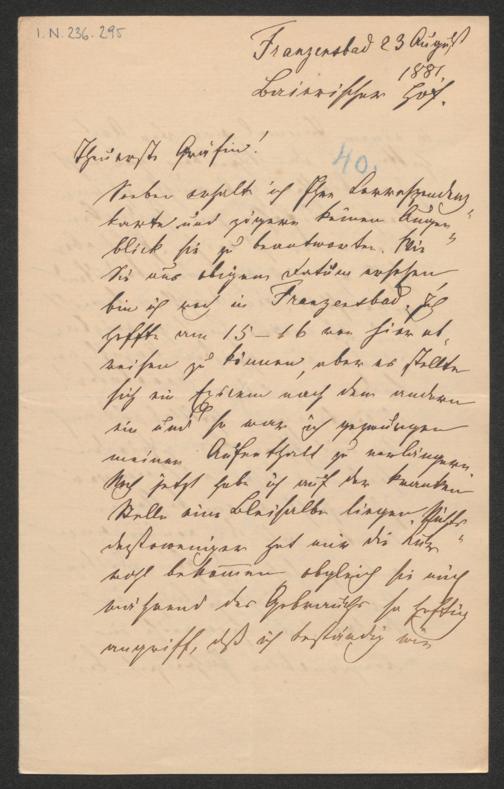 I.N. 236.295
Franzensbad 23 August
1881.
Bairischer Hof.
40.
Theuerste Gräfin!
Soeben erhalte ich Ihre Correspondenz-
karte und zögere keinen Augen-
blick sie zu beantworten. Wie
Sie aus obigem Datum ersehen
bin ich noch in Franzensbad. Ich
hoffte am 15–16 von hier ab-
reisen zu können, aber es stellte
sich ein Excem nach dem andern
ein und so war ich gezwungen
meinen Aufenthalt zu verlängern.
Noch jetzt habe ich auf der kranken
Stelle eine Bleisalbe liegen. Nichts
destoweniger hat mir die Kur
wohl bekommen obgleich sie mich
während des Gebrauchs so heftig
angriff, daß ich beständig wie